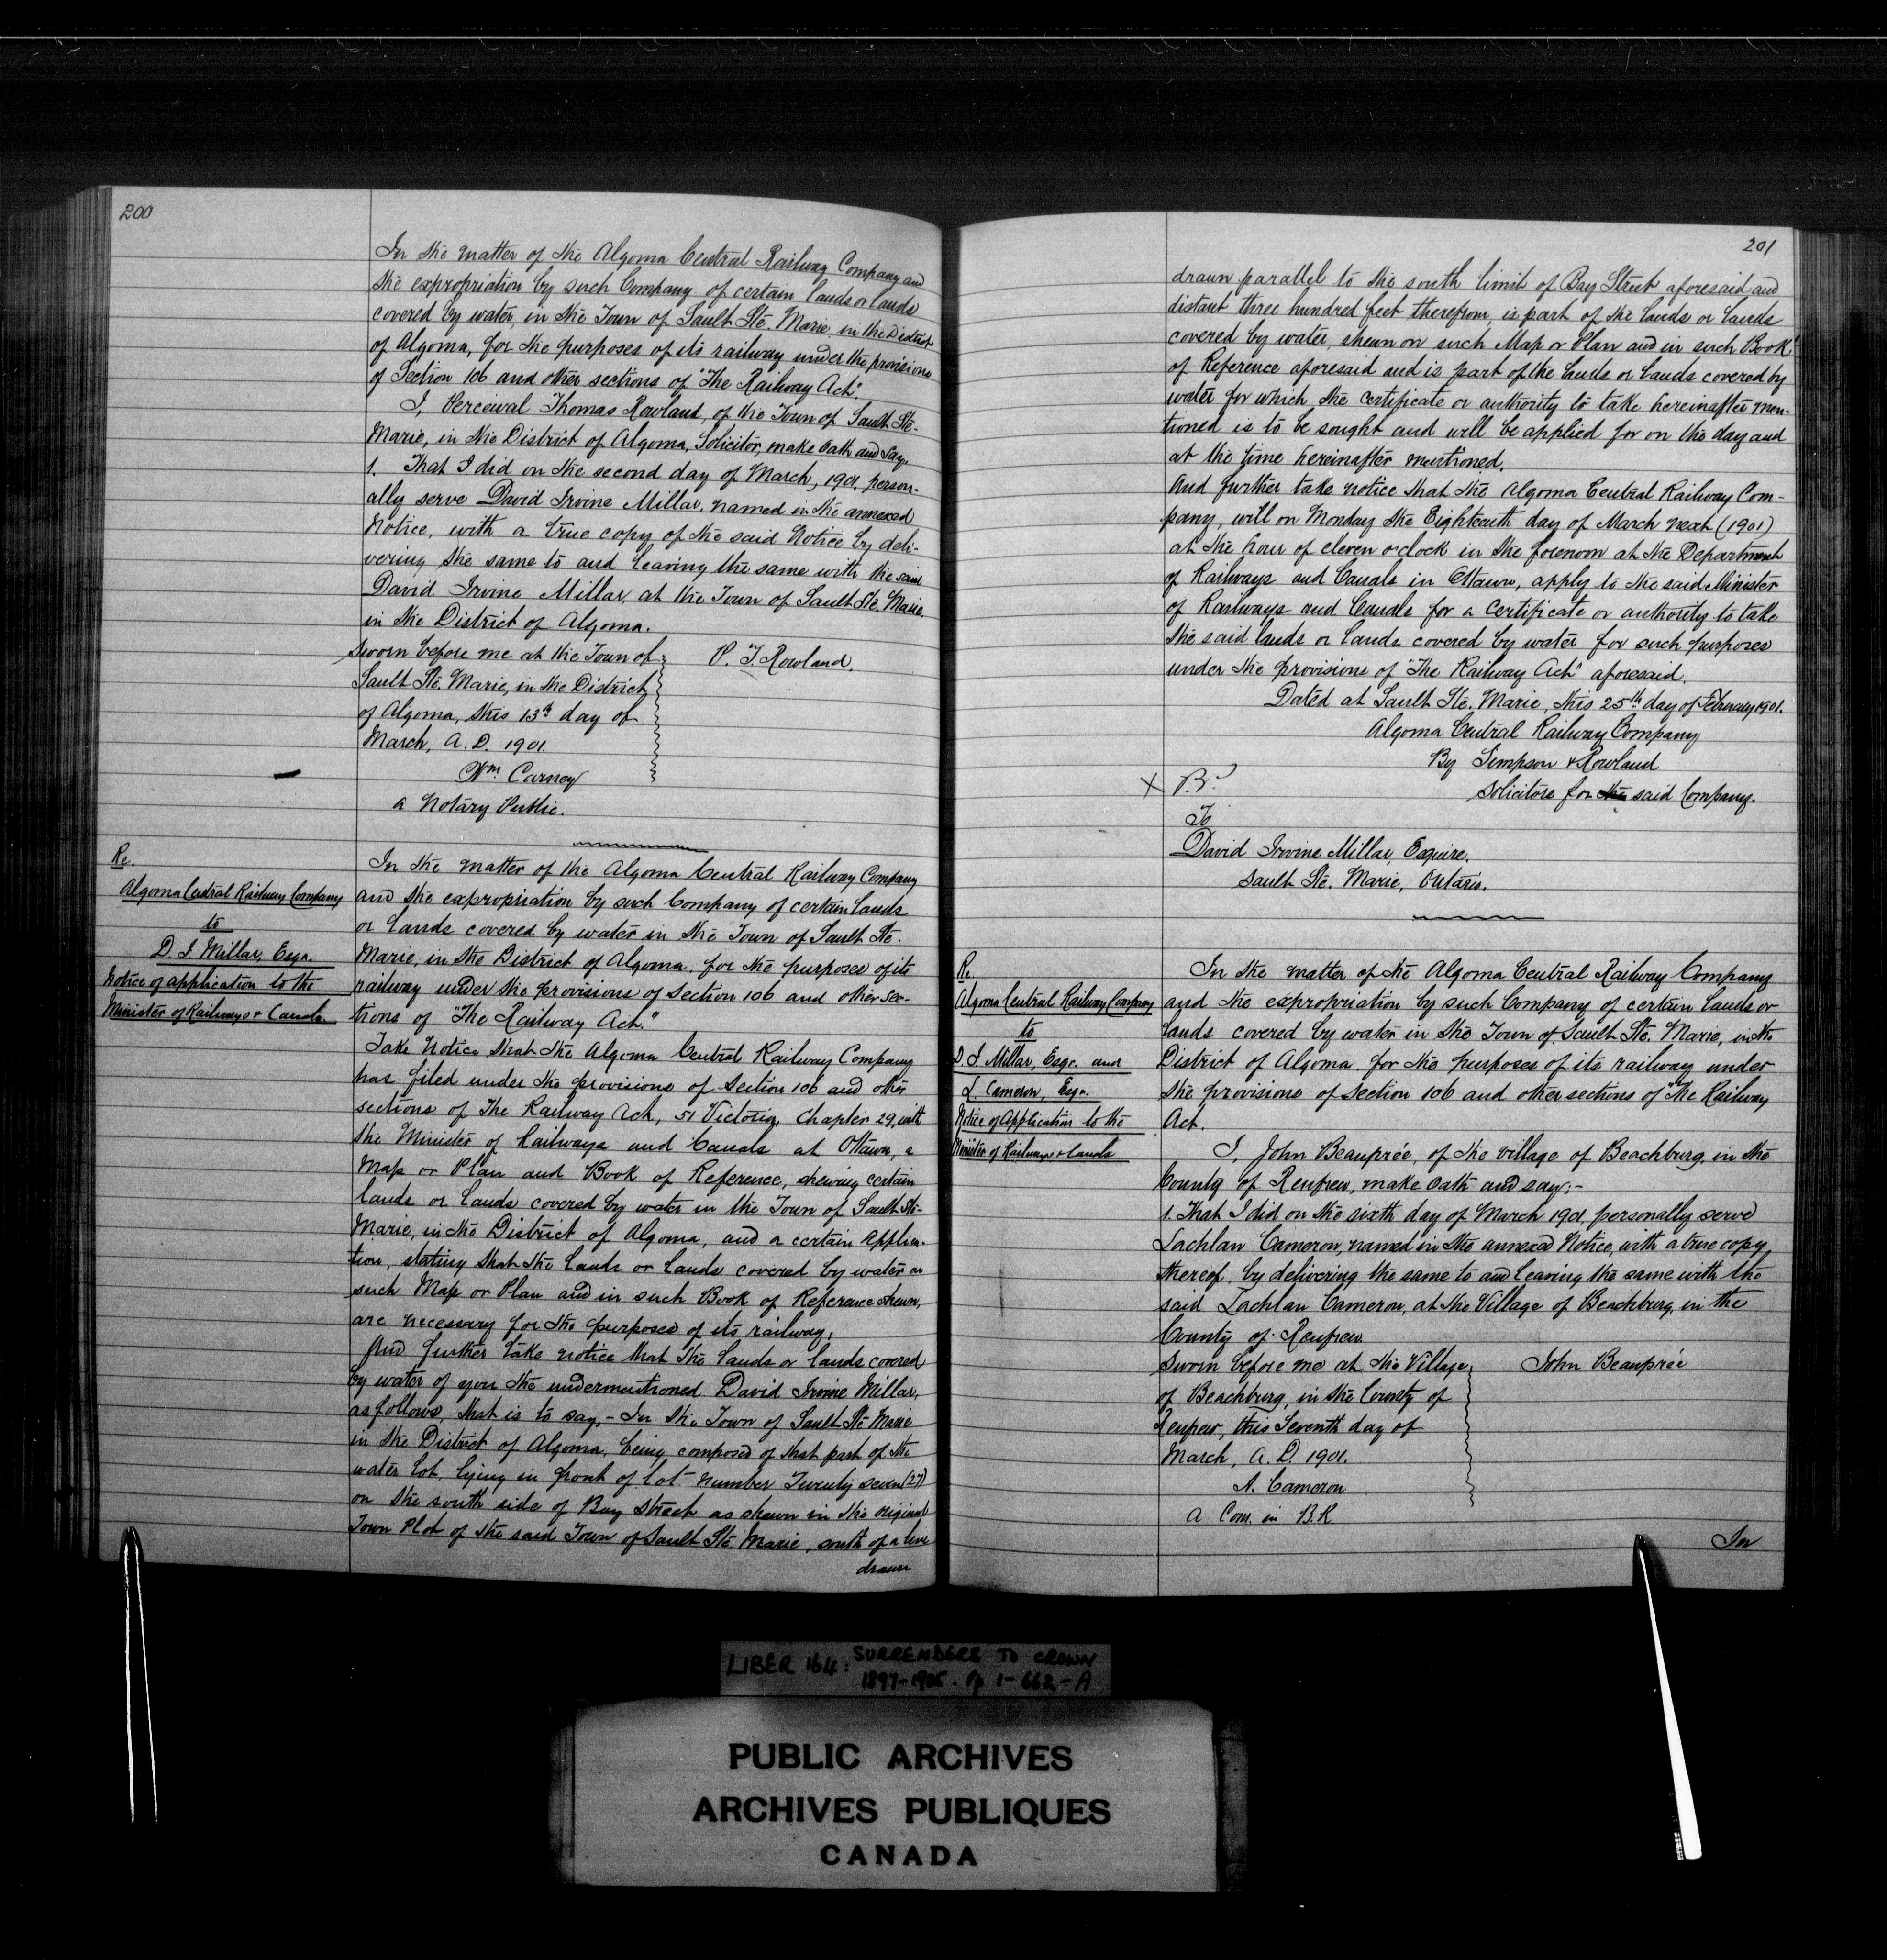 200
In the matter of the Algoma Central Railway Company and
the expropriation by such Company of certain lands or lands
covered by water, in the Town of Sault Ste. Marie in the District
of Algoma, for the purposes of its railway under the provisions
of Section 106 and other sections of "The Railway Act".
I, Percival Thomas Rowland, of the Town of Sault Ste.
Marie, in the District of Algoma, Solicitor, make oath and say,
1. That I did on the second day of March, 1901, person-
ally serve David Irvine Millar, named in the annexed
Notice, with a true copy of the said Notice by deli-
vering the same to and leaving the same with the said
David Irvine Millar, at the Town of Sault Ste. Marie
in the District of Algoma.
Sworn before me at the Town of P. T. Rowland.
Sault Ste. Marie, in the District
of Algoma, this 13th day of
March, A.D. 1901
Wm Carney
a Notary Public.
Re.
Algoma Central Railway Company
to
D. I. Millar, Esqr.
Notice of application to the
Minister of Railways & Canals
In the matter of the Algoma Central Railway Company
and the expropriation by such Company of certain lands
or lands covered by water in the Town of Sault Ste.
Marie, in the District of Algoma, for the purposes of its
railway under the provisions of Section 106 and other sec-
tions of "The Railway Act."
Take notice that the Algoma Central Railway Company
has filed under the provisions of Section 106 and other
sections of The Railway Act, 51 Victoria, Chapter 29, with
the Minister of Railways and Canals at Ottawa, a
Map or Plan and Book of Reference, shewing certain
lands or lands covered by water in the Town of Sault Ste.
Marie, in the District of Algoma, and a certain applica-
tion, stating that the lands or lands covered by water on
such Map or Plan and in such Book of Reference shewn,
are necessary for the purposes of its railway.
And further take notice that the lands or lands covered
by water of you the undermentioned David Irvine Millar,
as follows, that is to say,- In the Town of Sault Ste Marie
in the District of Algoma, being composed of that part of the
water lot lying in front of lot number Twenty seven (27)
on the south side of Bay Street as shewn in the original
Town Plot of the said Town of Sault Ste. Marie, south of a line
drawn
201
drawn parallel to the south limit of Bay Street aforesaid and
distant three hundred feet therefrom, is part of the lands or lands
covered by water, shewn on such Map or Plan and in such Book
of Reference aforesaid and is part of the lands or lands covered by
water for which the certificate or authority to take hereinafter men-
tioned is to be sought and will be applied for on the day and
at the time hereinafter mentioned.
And further take notice that the Algoma Central Railway Com-
pany, will on Monday the Eighteenth day of March next (1901)
at the hour of eleven o'clock in the forenoon at the Department
of Railways and Canals in Ottawa, apply to the said Minister
of Railways and Canals for a Certificate or authority to take
the said lands or lands covered by water for such purposes
under the provisions of "The Railway Act" aforesaid.
Dated at Sault Ste. Marie, this 25th day of February 1901.
Algoma Central Railway Company
By Simpson & Rowland
Solicitors for the said Company.
To
David Irvine Millar, Esquire,
Sault Ste. Marie, Ontario.
Re.
Algoma Central Railway Company
to
D. I. Millar, Esqr. and
L. Cameron, Esqr.
Notice of Application to the
Minister of Railways & Canals
In the matter of the Algoma Central Railway Company
and the expropriation by such Company of certain lands or
lands covered by water in the Town of Sault Ste. Marie, in the
District of Algoma for the purposes of its railway under
the provisions of Section 106 and other sections of "The Railway
Act.
I, John Beauprée, of the village of Beachburg, in the
County of Renfrew, make oath and say:-
1. That I did on the sixth day of March 1901, personally serve
Lachlan Cameron, named in the annexed Notice, with a true copy
thereof, by delivering the same to and leaving the same with the
said Lachlan Cameron, at the Village of Beachburg, in the
County of Renfrew
Sworn before me at the Village John Beauprée
of Beachburg, in the County of
Renfrew, this Seventh day of
March, A.D. 1901.
A. Cameron
A Com. in B.R.
In
LIBER 164: SURRENDERS TO CROWN
1897-1905. Pp 1-662-A
PUBLIC ARCHIVES
ARCHIVES PUBLIQUES
CANADA